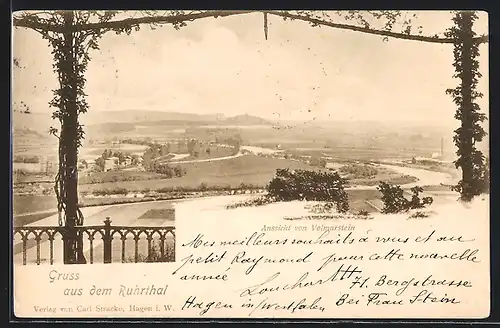 Aussicht von Volmarstein
Gruss
aus dem Ruhrthal
Verlag von Carl Stracke, Hagen i. W.
Mes meilleurs souhaits à vous et au
petit Raymond pour cette nouvelle
année
71. Bergstrasse
Hagen in Westfalen Bei Frau Stein